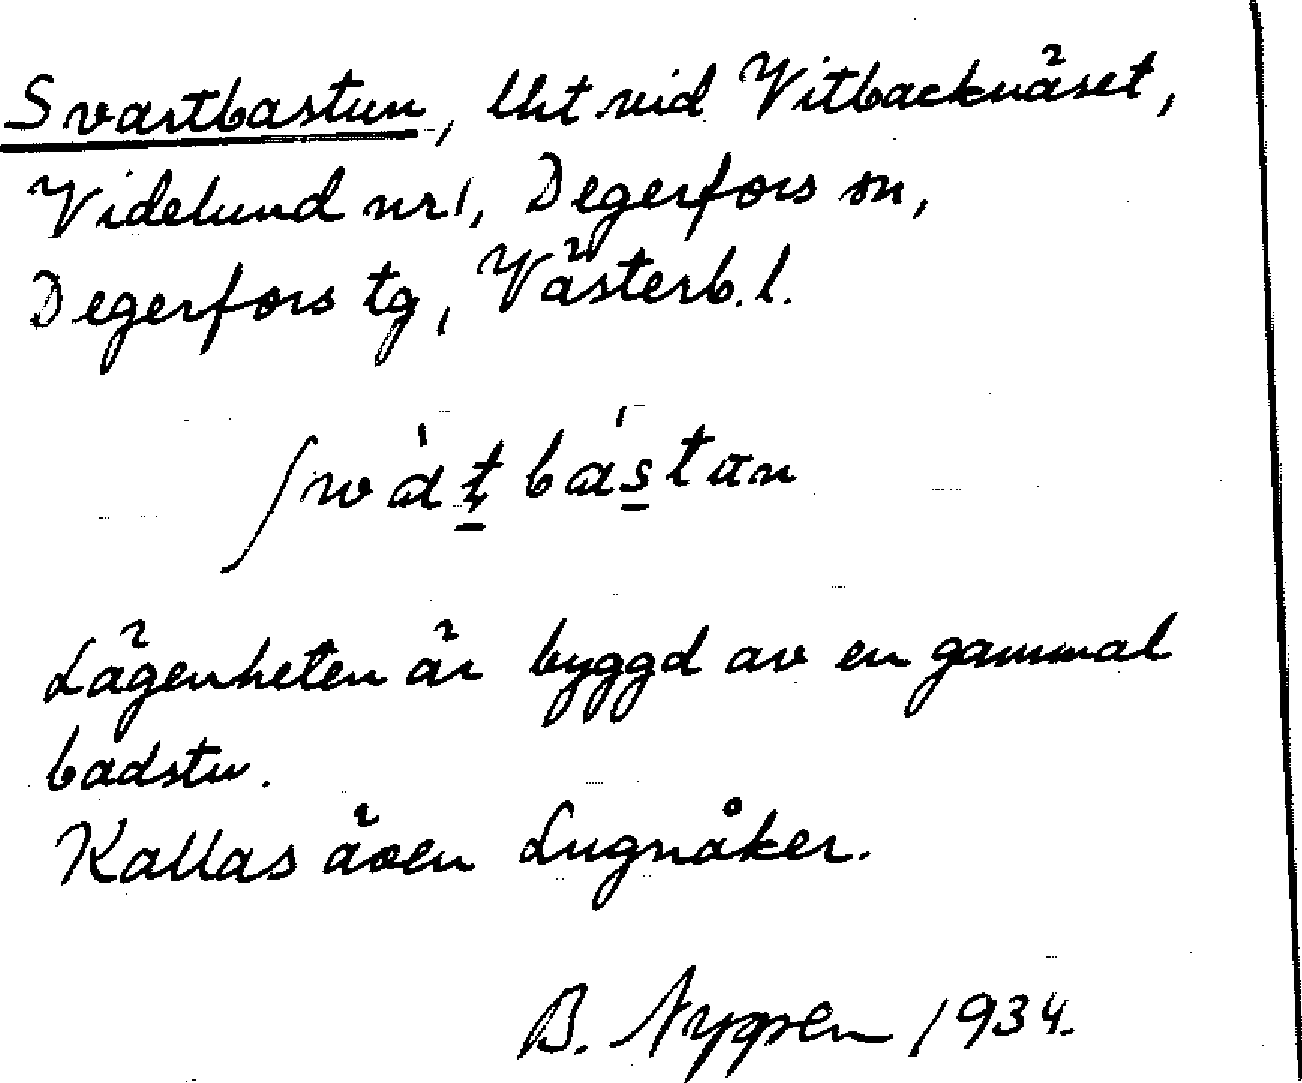 Svartbastun, lht vid Vitbacknäset,
Videlund nr 1, Degerfors sn,
Degerfors tg, Västerb. l.
Lägenheten är byggd av en gammal
badstu.
Kallas även Lugnåker.
B. Nygren 1934.